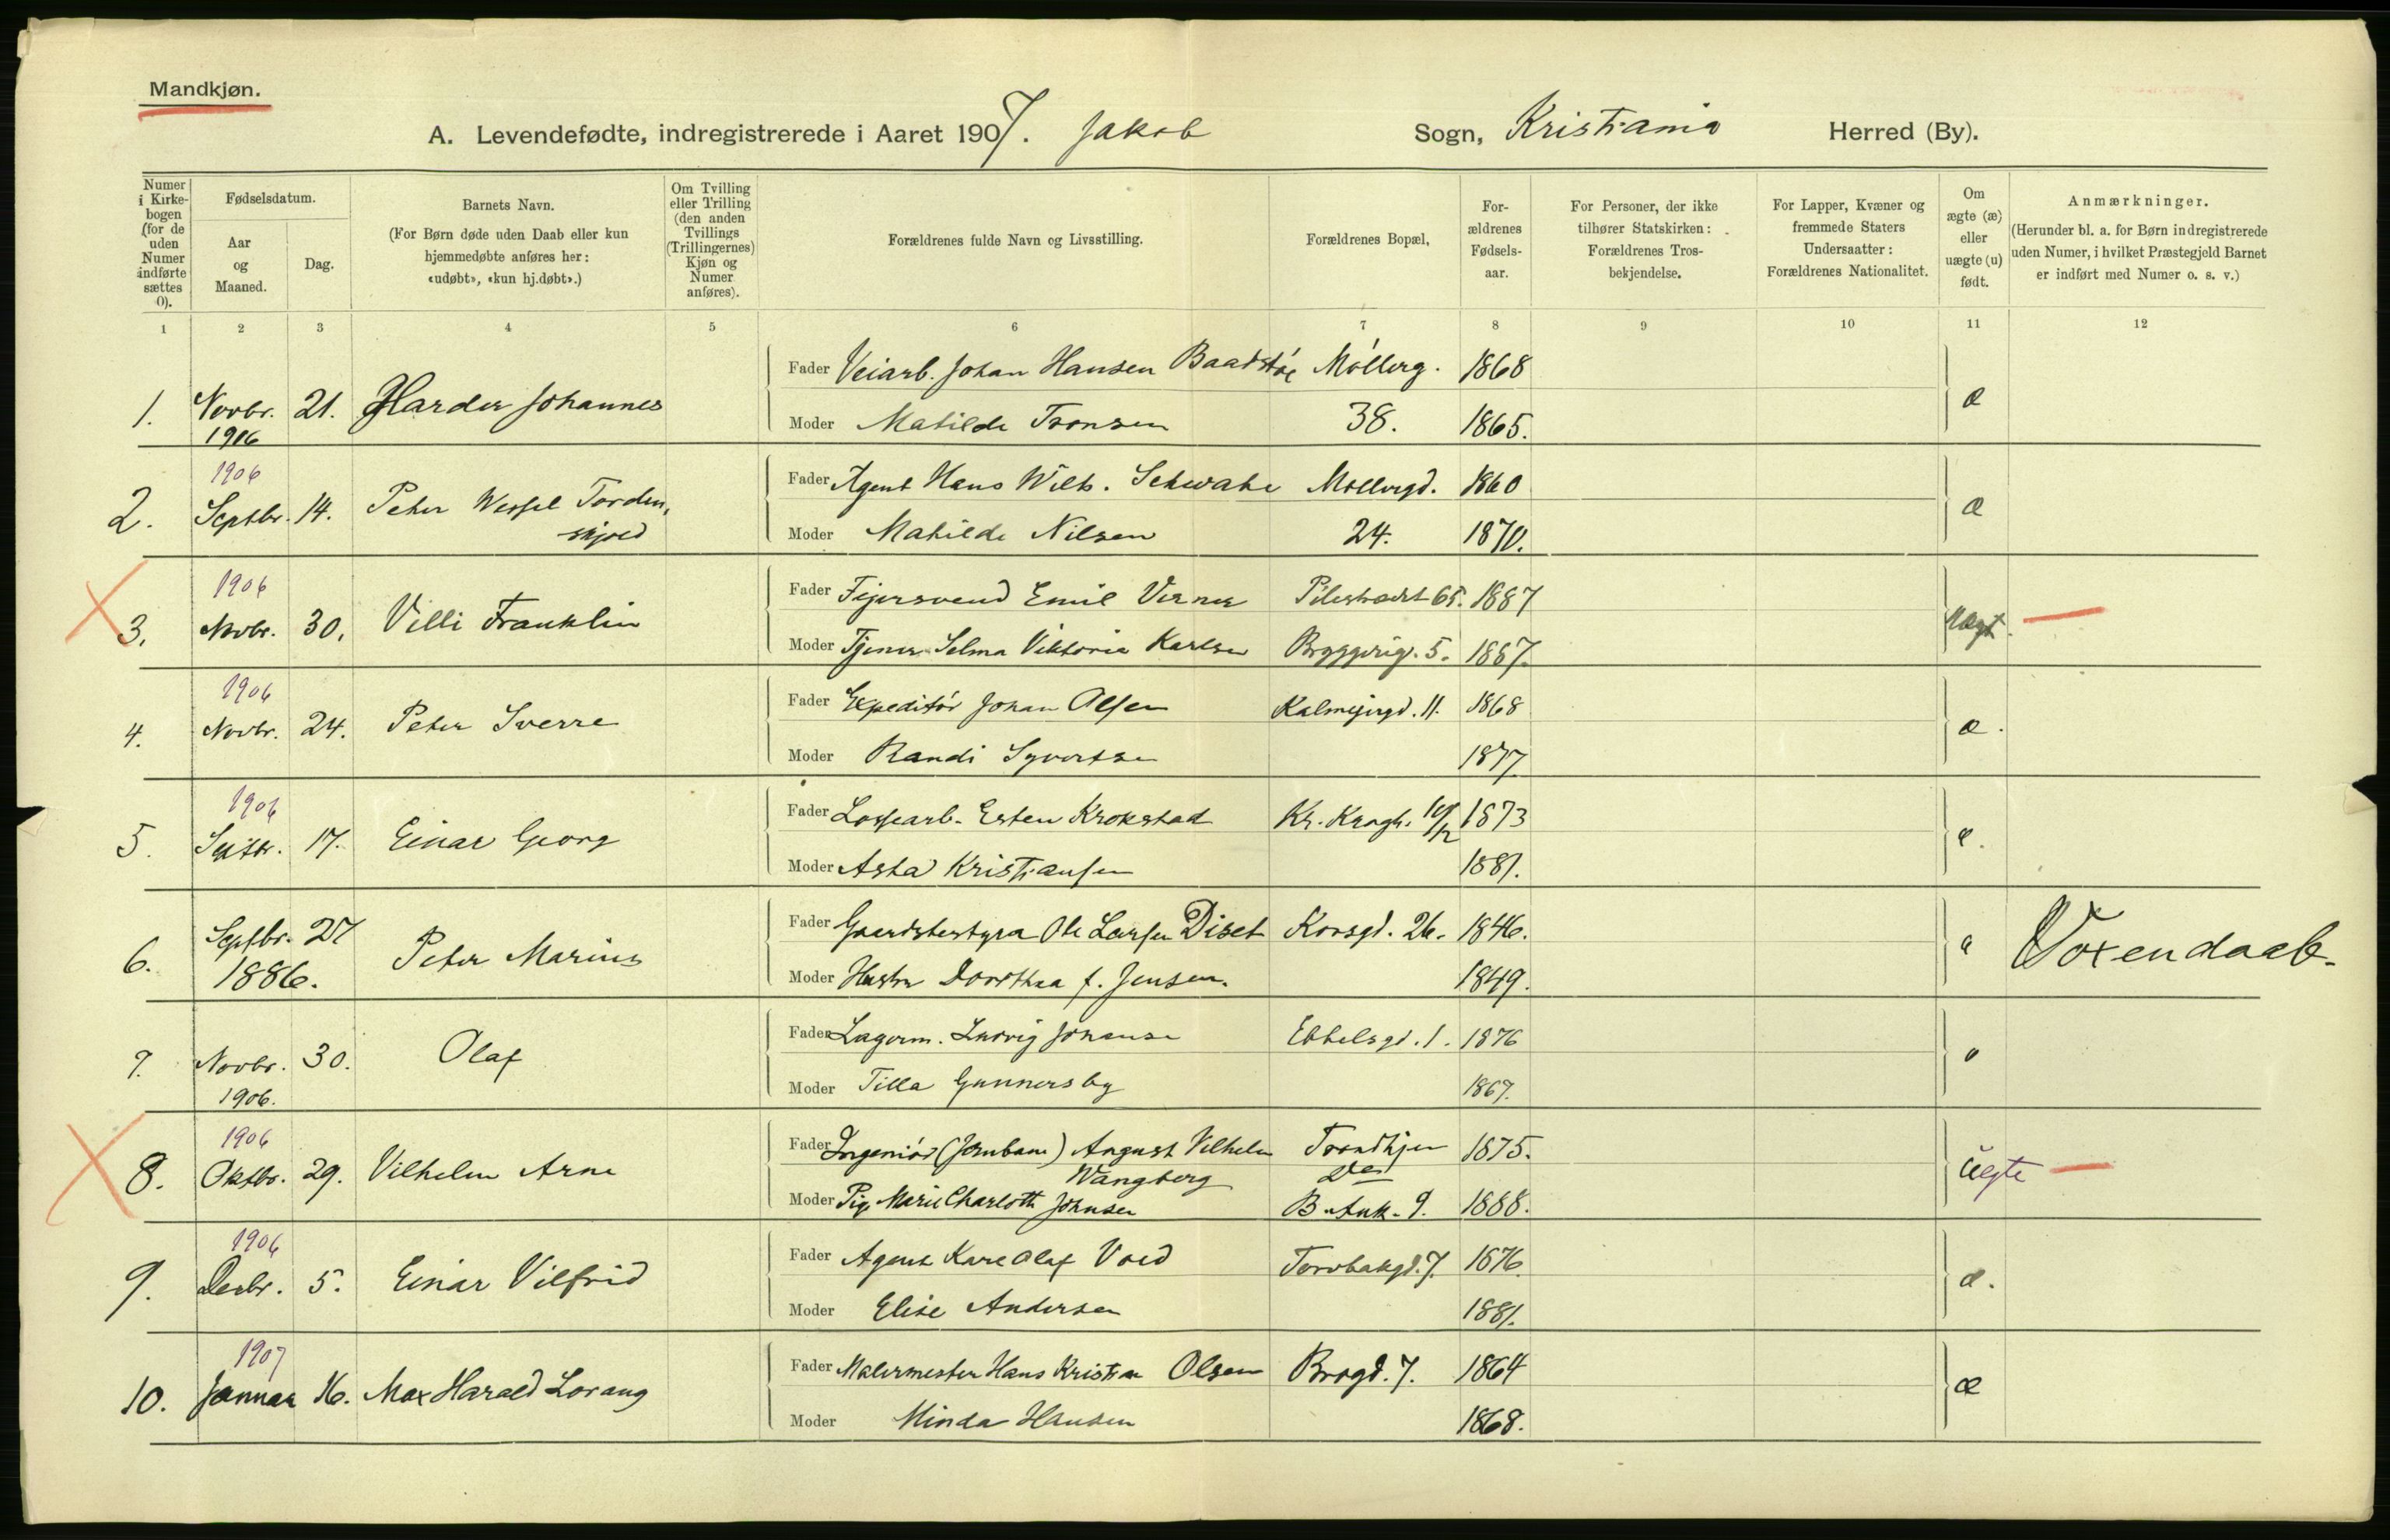 Mandkjøn.
A. Levendefødte, indregistrerede i Aaret 1907. Jakob Sogn, Kristiania Herred (By).
Numer i Kirke-bogen (for de uden Numer indførte sættes 0).
Fødselsdatum.
Aar og Maaned.
Dag.
Barnets Navn.
(For Børn døde uden Daab eller kun hjemmedøbte anføres her: «udøbt», «kun hj.døbt».)
Om Tvilling eller Trilling (den anden Tvillings (Trillingernes) Kjøn og Numer anføres).
Forældrenes fulde Navn og Livsstilling.
Forældrenes Bopæl,
For-ældrenes Fødsels-aar.
For Personer, der ikke tilhører Statskirken: Forældrenes Tros-bekjendelse.
For Lapper, Kvæner og fremmede Staters Undersaatter: Forældrenes Nationalitet.
Om ægte (æ) eller uægte (u) født.
Anmærkninger.
(Herunder bl. a. for Børn indregistrerede uden Numer, i hvilket Præstegjeld Barnet er indført med Numer o. s. v.)
1 2 3 4 5 6 7 8 9 10 11 12
1. Novbr. 1906 21. Harder Johannes
Fader Veiarb. Johan Hansen Baadstøe Møllerg. 1868
Moder Matilde Tronsen 38. 1865.
æ
2. 1906 Septbr. 14. Peter Wessel Torden-
skjold
Fader Agent Hans Wilh. Schwabe Møllergd. 1860
Moder Mathilde Nilsen 24. 1870.
æ
3. 1906 Novbr. 30. Villi Franklin
Fader Fejersvend Emil Verner Pilestrædet 65. 1887
Moder Tjener Selma Viktoria Karlsen Bryggerig. 5. 1887.
uægt.
4. 1906 Novbr. 24. Peter Sverre
Fader Expeditør Johan Olsen Kalmejergd. 11. 1868
Moder Randi Syvertsen 1877
æ.
5. 1906 Septbr. 17. Einar Georg
Fader Lossearb. Esten Krokstad Kr. Kragh. 1873
Moder Asta Kristiansen 1881.
æ.
6. Septbr. 27 1886. Peter Marius
Fader Gaardsbestyrer Ole Larsen Diset Korsgd. 26. 1846.
Moder Hustru Dorthea f. Jensen. 1849.
æ Voxendaab.
7. Novbr. 1906. 30. Olaf
Fader Lagerm. Ludvig Johansen Ebbelsgd. 1. 1876
Moder Tilla Gunnersby 1867.
8. 1906 Oktbr. 29. Vilhelm Arne
Fader Ingeniør (Jernbane) August Vilhelm Wangberg Trondhjem 1875.
Moder Pige Marie Charlotte Johnsen B. Ank. 9. 1888.
uægte
9. 1906 Decbr. 5. Einar Vilfrid
Fader Agent Kare Olaf Vold Torvbakgd. 7. 1876.
Moder Elise Andersen 1881.
æ.
10. 1907 Januar 16. Max Harald Lorang
Fader Malermester Hans Kristian Olsen Brogd. 7. 1864
Moder Minda Hansen 1868.
æ